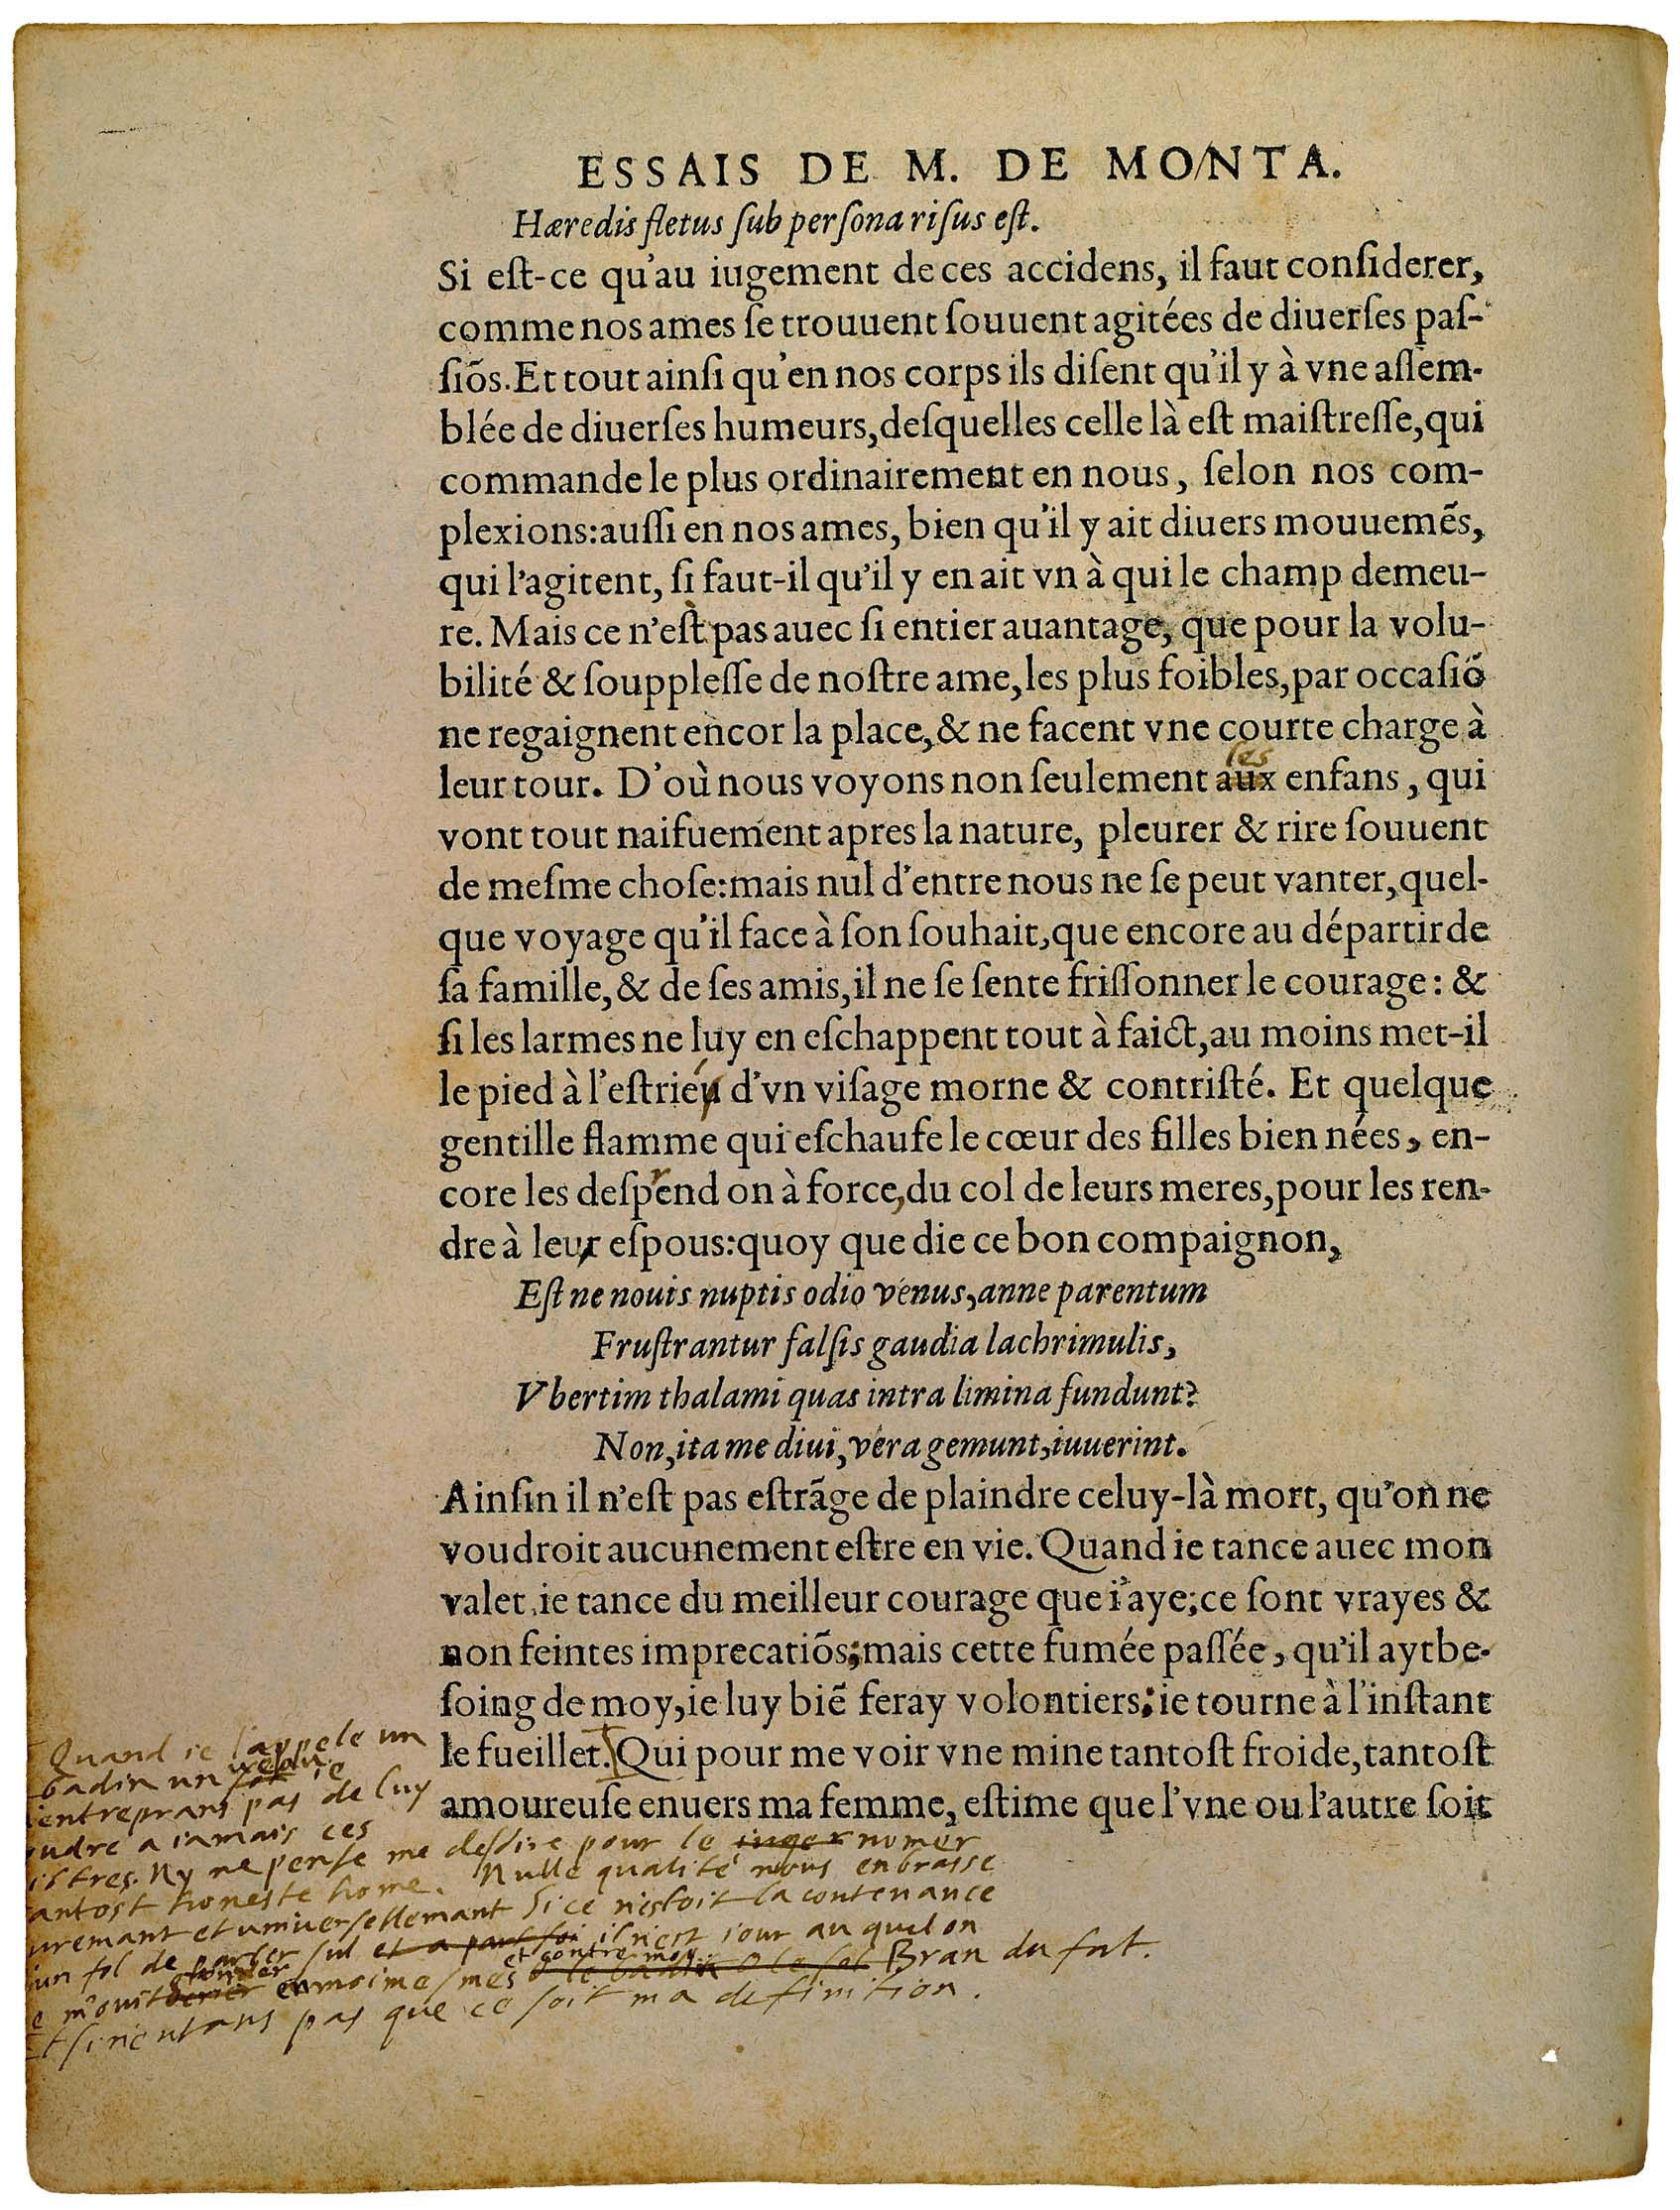 ESSAIS DE M. DE MONTA.
Hæredis fletus ſub perſona riſus eſt.
Si eſt-ce qu'au iugement de ces accidens, il faut conſiderer,
comme nos ames ſe trouuent ſouuent agitées de diuerſes paſ-
ſiõs. Et tout ainſi qu'en nos corps ils diſent qu'il y à vne aſſem-
blée de diuerſes humeurs, deſquelles celle là eſt maiſtreſſe, qui
commande le plus ordinairement en nous, ſelon nos com-
plexions: auſſi en nos ames, bien qu'il y ait diuers mouuemẽs,
qui l'agitent, ſi faut-il qu'il y en ait vn à qui le champ demeu-
re. Mais ce n'eſt pas auec ſi entier auantage, que pour la volu-
bilité & ſoupplesſe de noſtre ame, les plus foibles, par occaſiõ
ne regaignent encor la place, & ne facent vne courte charge à
les
leur tour. D'où nous voyons non ſeulement aux enfans, qui
vont tout naifuement apres la nature, pleurer & rire ſouuent
de meſme choſe: mais nul d'entre nous ne ſe peut vanter, quel-
que voyage qu'il face à ſon ſouhait, que encore au départir de
ſa famille, & de ſes amis, il ne ſe ſente friſſonner le courage: &
ſi les larmes ne luy en eſchappent tout à faict, au moins met-il
le pied à l'eſtriéu d'vn viſage morne & contriſté. Et quelque
gentille flamme qui eſchaufe le cœur des filles bien nées, en-
core les deſprend on à force, du col de leurs meres, pour les ren-
dre à leur eſpous: quoy que die ce bon compaignon,
Eſt ne nouis nuptis odio venus, anne parentum
Fruſtrantur falſis gaudia lachrimulis,
Vbertim thalami quas intra limina fundunt?
Non, ita me diui, vera gemunt, iuuerint.
Ainſin il n'eſt pas eſtrãge de plaindre celuy-là mort, qu'on ne
voudroit aucunement eſtre en vie. Quand ie tance auec mon
valet, ie tance du meilleur courage que i'aye; ce ſont vrayes &
non feintes imprecatiõs; mais cette fumée paſſée, qu'il ayt be-
ſoing de moy, ie luy biẽ feray volontiers; ie tourne à l'inſtant
le fueillet. Qui pour me voir vne mine tantoſt froide, tantoſt
amoureuſe enuers ma femme, eſtime que l'vne ou l'autre ſoit
Quand ie l'appele un
badin un sot ie
entreprans pas de luy
udre a iamais ces
iltres. Ny ne pense me desdire pour le iuger nomer
antost honeste home. Nulle qualité nous enbrasse
uremant et universellemant Si ce n'estoit la contenance
un fol de parler sul et a part soi il n'est iour au quel on
gronder et contre moy
e m'ouit en moimesmes Bran du fat.
t si n'entans pas que ce soit ma definition.